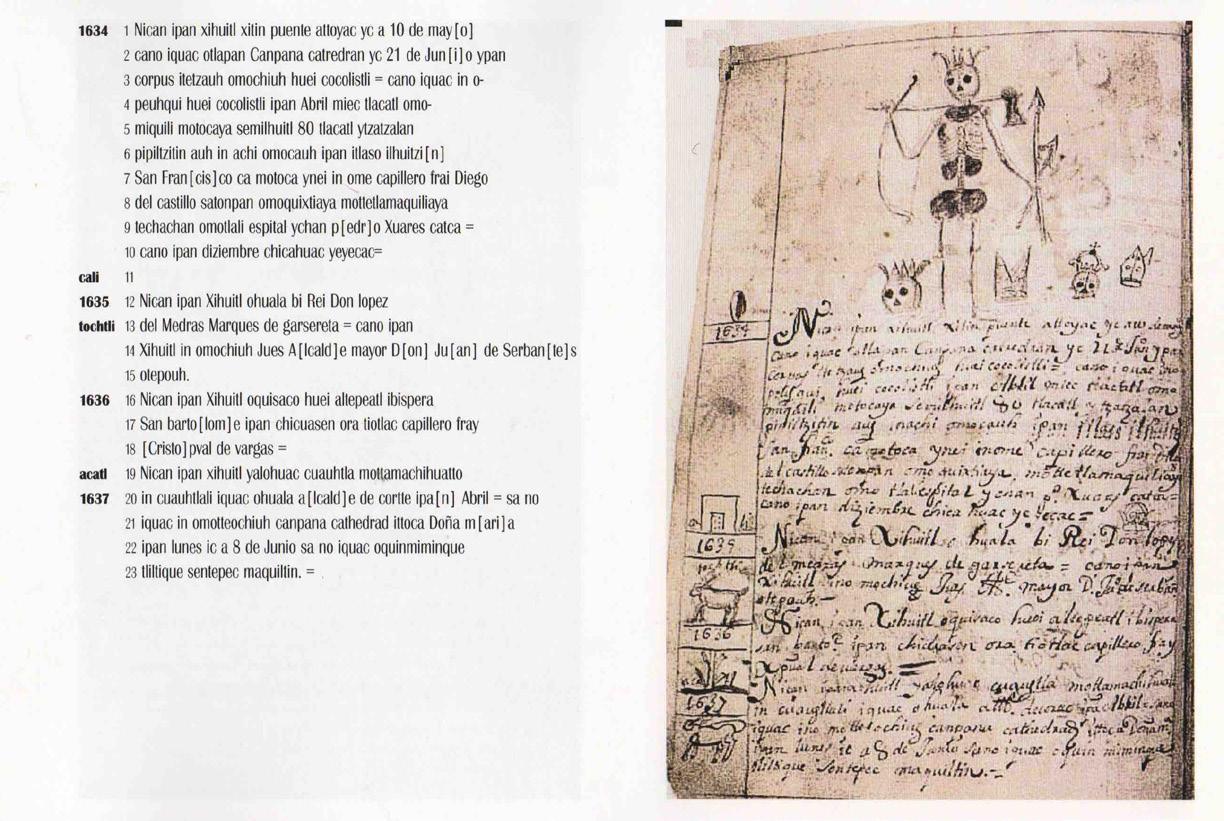 1634 1 Nican ipan xihuitl xitin puente attoyac yc a 10 de may[o]
2 cano iquac otlapan Canpana catredran yc 21 de Jun[i]o ypan
3 corpus itetzauh omochiuh huei cocolistli = cano iquac in o-
4 peuhqui huei cocolistli ipan Abril miec tlacatl omo-
5 miquili motocaya semilhuitl 80 tlacatl ytzatzalan
6 pipiltzitin auh in achi omocauh ipan itlaso ilhuitzi[n]
7 San Fran[cis]co ca motoca ynei in ome capillero frai Diego
8 del castillo satonpan omoquixtiaya mottetlamaquiliaya
9 techachan omotlali espital ychan p[edr]o Xuares catca =
10 cano ipan diziembre chicahuac yeyecac=
cali 11
1635 12 Nican ipan Xihuitl ohuala bi Rei Don lopez
tochtli 13 del Medras Marques de garsereta = cano ipan
14 Xihuitl in omochiuh Jues A[lcald]e mayor D[on] Ju[an] de Serban[te]s
15 otepouh.
1636 16 Nican ipan Xihuitl oquisaco huei altepeatl ibispera
17 San barto[lom]e ipan chicuasen ora tiotlac capillero fray
18 [Cristo]pval de vargas =
acatl 19 Nican ipan xihuitl yalohuac cuauhtla mottamachihuatto
1637 20 in cuauhtlali iquac ohuala a[lcald]e de cortte ipa[n] Abril = sa no
21 iquac in omotteochiuh canpana cathedrad ittoca Doña m[ari]a
22 ipan lunes ic a 8 de Junio sa no iquac oquinmiminque
23 tliltique sentepec maquiltin. =
1634
Nican ipan xihuitl xitin puente attoyac yc a
cano iquac otlapan Canpana catredran yc 21 Jun ypan
huei cocolistli = cano iquac in o
huei cocolistli ipan Abril miec tlacatl omo
motocaya semilhuitl 80 tlacatl
pipiltzitin auh inachi omocauh ipan
San fran ca motoca ynei inome capillero frai
del castillo omoquixtiaya mottetlamaquiliaya
techachan omotlali espital ychan po Xuares catca=
cano ipan diziembre chicahuac yeyecac=
1635
Nican ipan Xihuitl ohuala bi Rei Don lopez
del medras marques de garsereta = cano ipan
Xihuitl ino mochiuh Jues mayor D.
otepouh.
1636
Nican ipan Xihuitl oquisaco huei altepeatl ibispera
san barto ipan chicuasen ora tiotlac capillero fray
xpual de vargas =
1637
Nican ipan xihuitl yalohuac cuauhtla
in cuauhtlali iquac ohuala
iquac ino motteochiuh canpana cathedrad ittoca
ipan lunes ic a 8 de Junio sano iquac oquin miminque
tliltique sentepec maquiltin.=